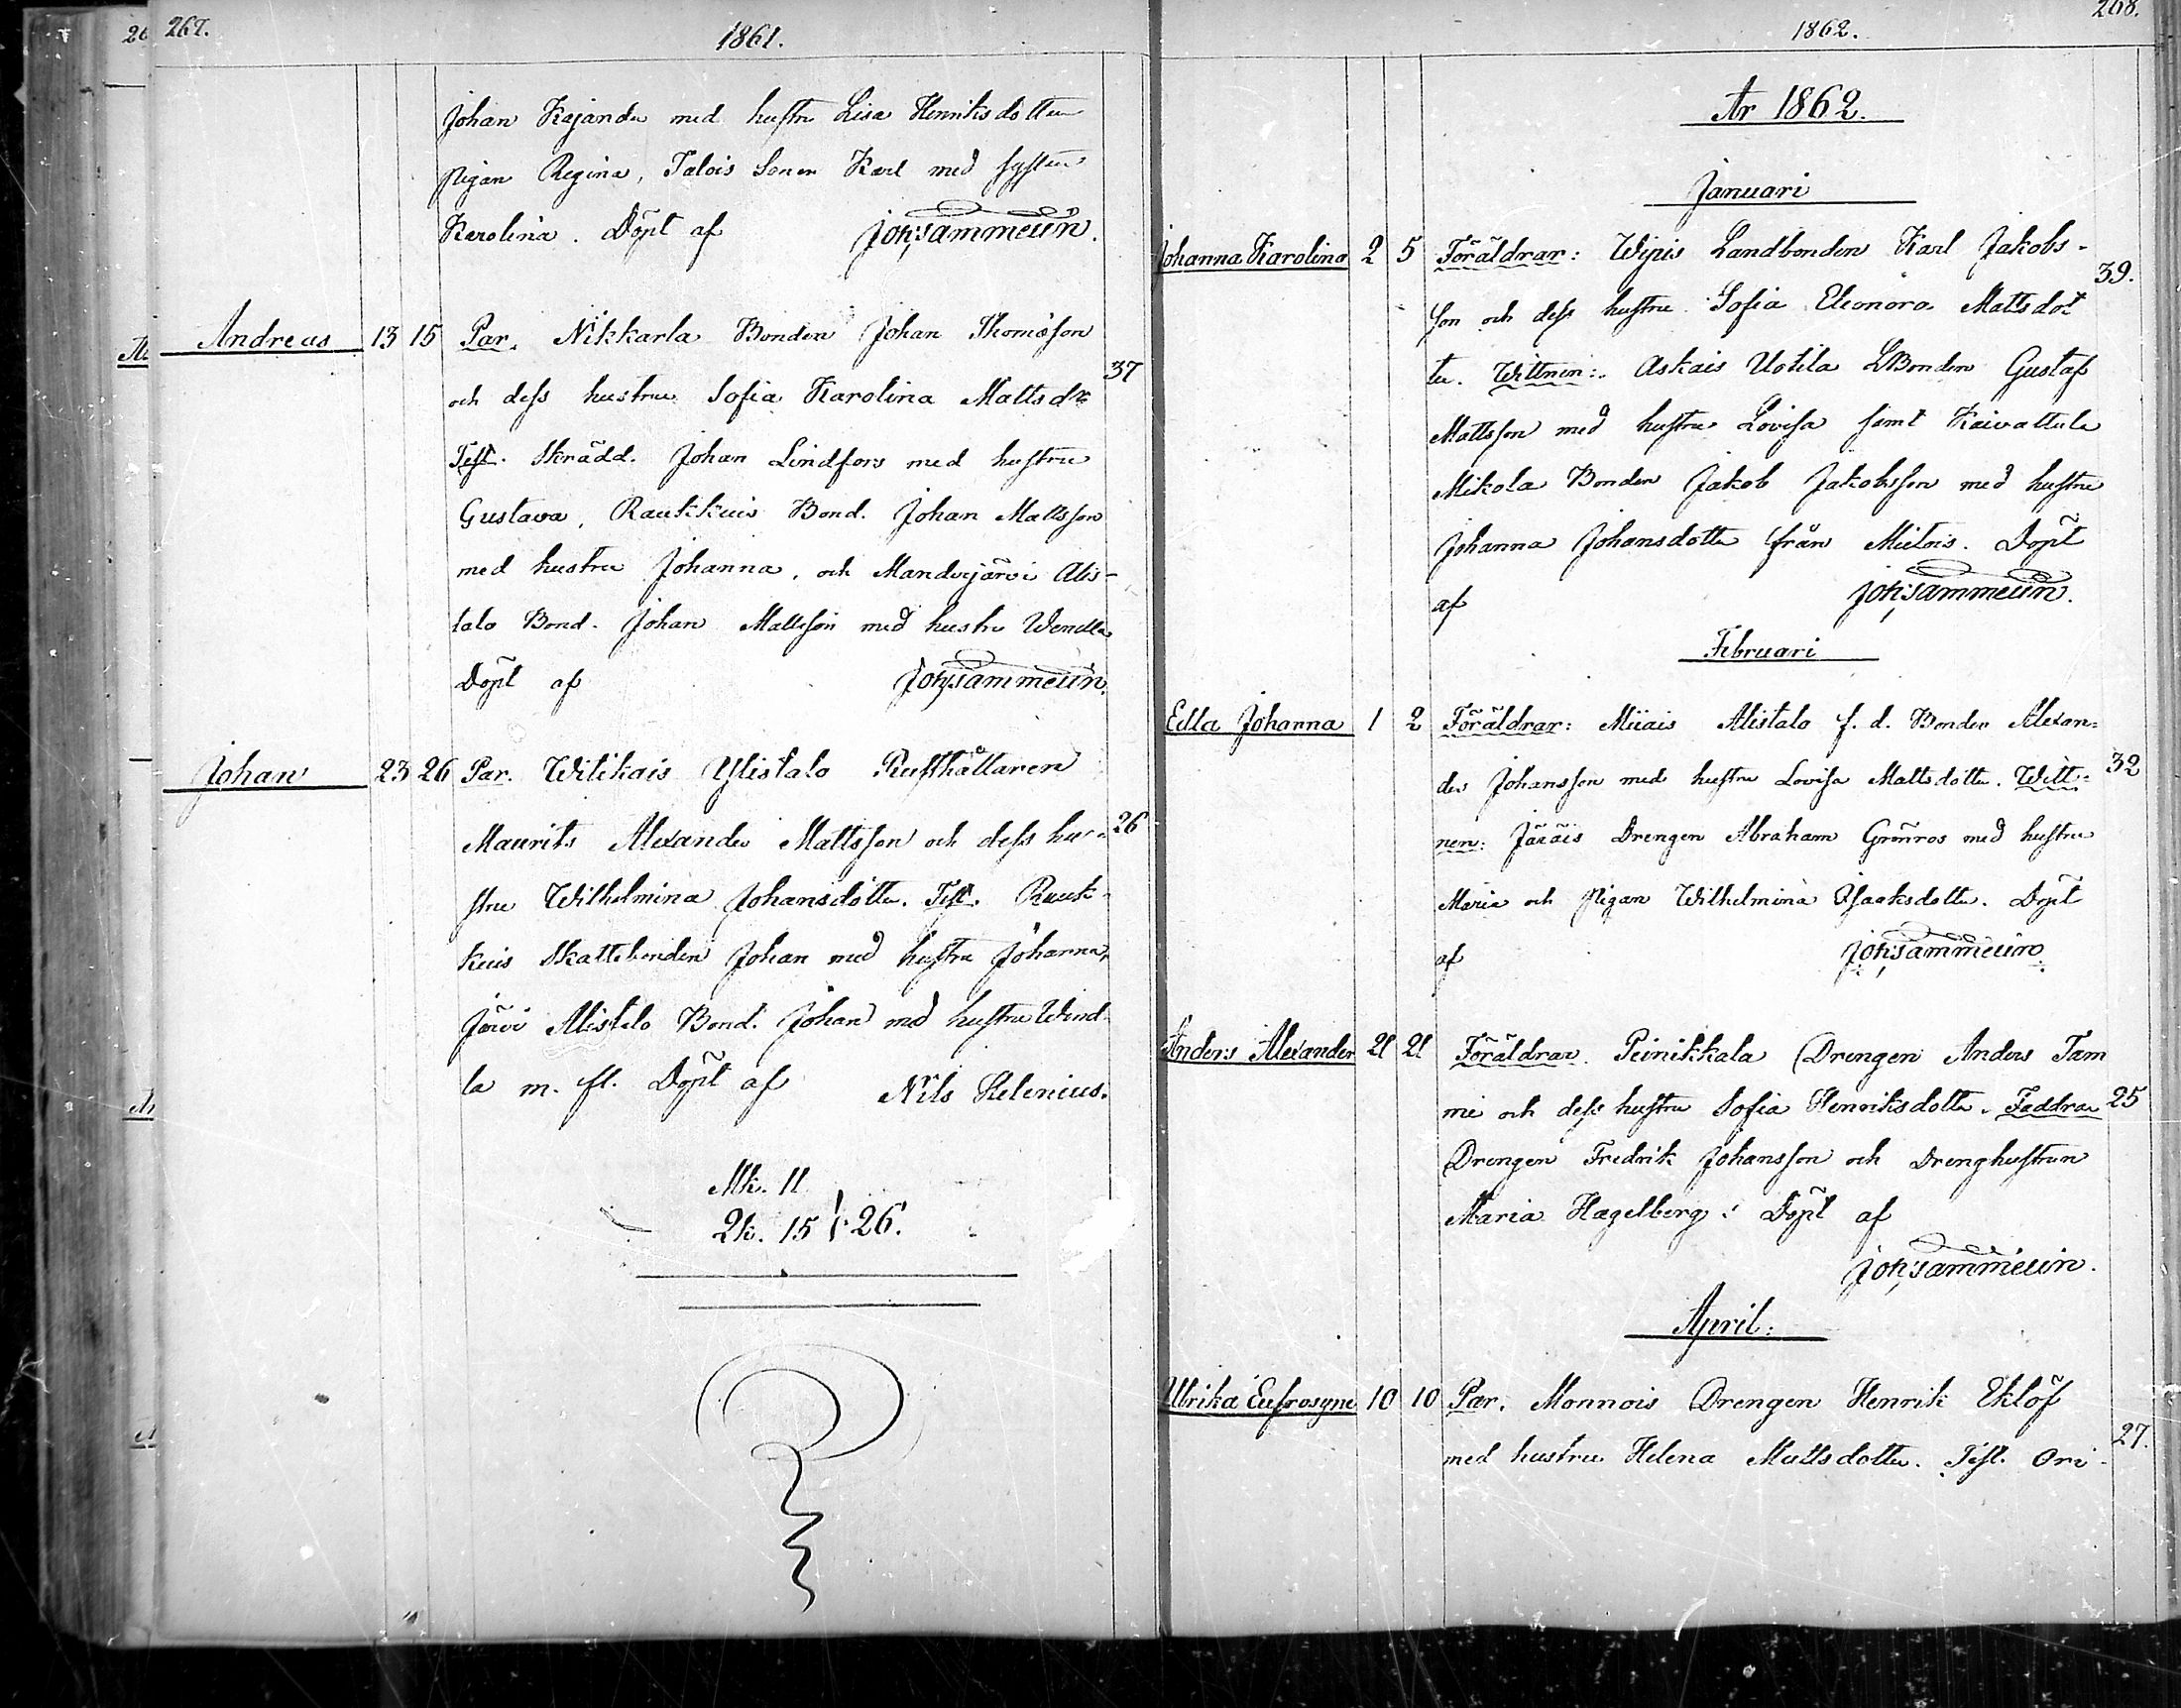 267.
1861.
Johan Kajander med hustru Lisa Henriksdotter
pigan Regina, Talois Sonen Karl med syster
Karolina. Döpt af Joh: Sammelin.
Andreas 13 15 Par. Nikkarla Bonden Johan Thomasson
37
och dess hustru Sofia Karolina Mattsdr
Test. Skrädd. Johan Lindfors med hustru
Gustava, Raukkuis Bond. Johan Mattsson
med hustru Johanna, och Manderjärvi Alis-
talo Bond. Johan Mattsson med hustru Wendla
Döpt af Joh: Sammelin.
Johan 23 26 Par. Wilikais Ylistalo Rusthållaren
Maurits Alexander Mattsson och dess hu- 26
stru Wilhelmina Johansdotter. Test. Rauk-
kuis Skattebonden Johan med hustru Johanna,
Järvi Alistalo Bond. Johan med hustru Wend-
la m. fl. Döpt af Nils Helenius.
Mk. 11
Qk. 15 } 26.
268.
1862.
År 1862.
Januari
Johanna Karolina 2 5 Föräldrar: Wijais Landbonden Karl Jakobs-
39.
son och dess hustru Sofia Eleonora Mattsdot
ter. Wittnen: Askais Uotila LBonden Gustaf
Mattsson med hustru Lovisa samt Kaivattula
Mikola Bonden Jakob Jakobsson med hustru
Johanna Johansdotter från Mietois. Döpt
af Joh: Sammelin.
Februari
Edla Johanna 1 2 Föräldrar: Miiais Alistalo f. d. Bonden Alexan-
der Johansson med hustru Lovisa Mattsdotter. Witt- 32
nen: Järäis Drengen Abraham Grönros med hustru
Maria och Pigan Wilhelmina Isaaksdotter. Döpt
af Joh: Sammelin
Anders Alexander 21 21 Föräldrar. Peinikkala Drengen Anders Tam
mi och dess hustru Sofia Henriksdotter. Faddrar 25
Drengen Fredrik Johansson och Drenghustrun
Maria Hagelberg: Döpt af
Joh: Sammelin.
April:
Ulrika Eufrosyne 10 10 Par. Monnois Drengen Henrik Eklöf
27.
med hustru Helena Mattsdotter. Test. Ori-